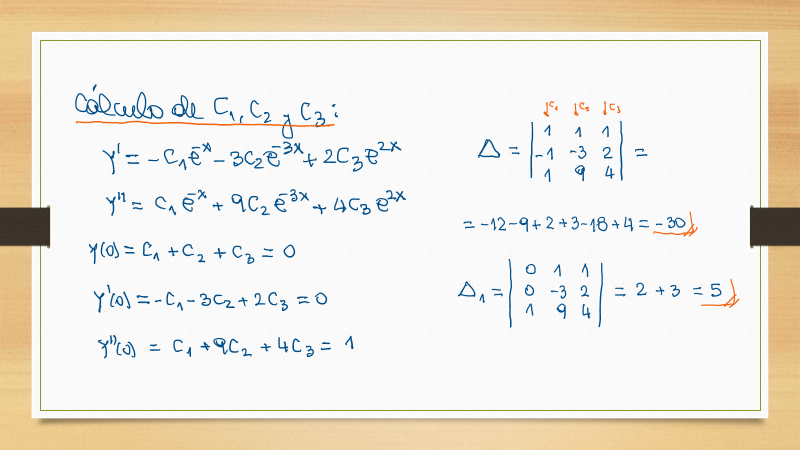 Cálculo de C₁, C₂ y C₃:
y' = -C₁e⁻ˣ - 3C₂e⁻³ˣ + 2C₃e²ˣ
y'' = C₁e⁻ˣ + 9C₂e⁻³ˣ + 4C₃e²ˣ
y(0) = C₁ + C₂ + C₃ = 0
y'(0) = -C₁ - 3C₂ + 2C₃ = 0
y''(0) = C₁ + 9C₂ + 4C₃ = 1
↓C₁ ↓C₂ ↓C₃
Δ = | 1 1 1 |
| -1 -3 2 | =
| 1 9 4 |
= -12 - 9 + 2 + 3 - 18 + 4 = -30
Δ₁ = | 0 1 1 |
| 0 -3 2 | = 2 + 3 = 5
| 1 9 4 |